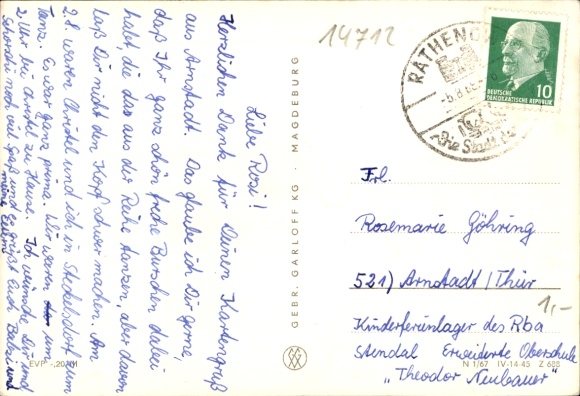 Liebe Rosi!
Herzlichen Dank für Deinen Kartengruß
aus Arnstadt. Das glaube ich Dir gerne,
daß Ihr ganz schön freche Burschen dabei
habt, die da aus der Reihe tanzen, aber davon
laß Dir nicht den Kopf schwer machen. Am
2.8. waren Christel und ich in Steckelsdorf zum
Tanz. Es war ganz prima. Wir waren um
2 Uhr bei Christel zu Hause. Ich wünsche Dir und
Schorchi noch viel Spaß und es grüßt Euch Babsi und
meine Eltern
EVP -,20 M
GEBR. GARLOFF KG · MAGDEBURG
14712
RATHENOW
-5.8.68
Die Stadt der
DEUTSCHE
DEMOKRATISCHE REPUBLIK
10
Frl.
Rosemarie Göhring
521) Arnstadt/Thür
1,-
Kinderferienlager des Rba
Stendal Erweiterte Oberschule
„Theodor Neubauer"
N 1/67 IV-14-45 Z 688